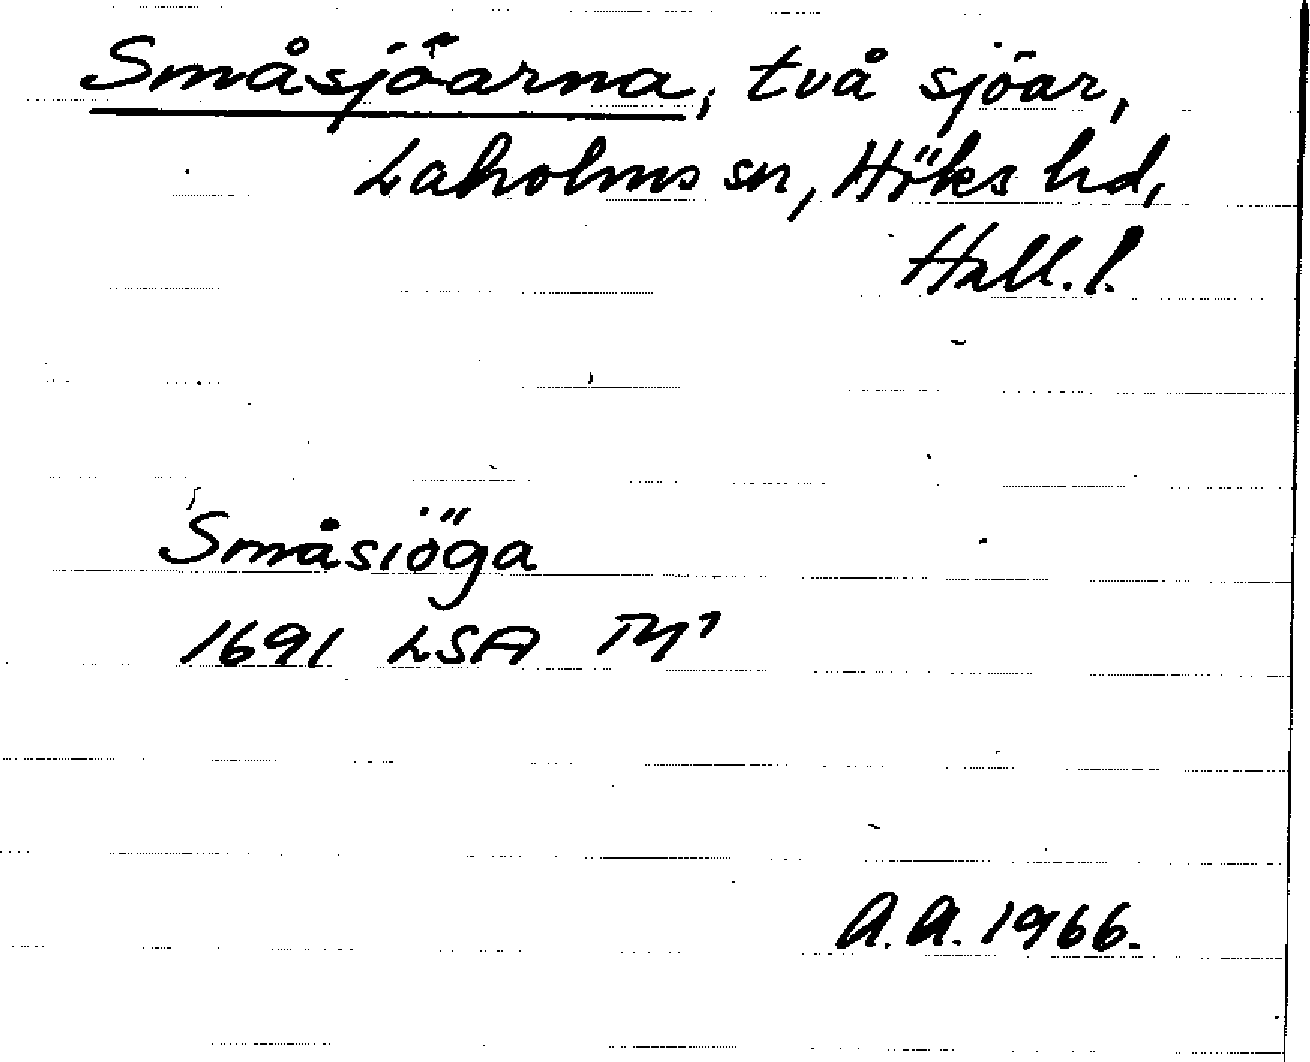 Småsjöarna, två sjöar,
Laholms sn, Höks hd,
Hall. l.
Småsiöga
1691 LSA
A.A. 1966.